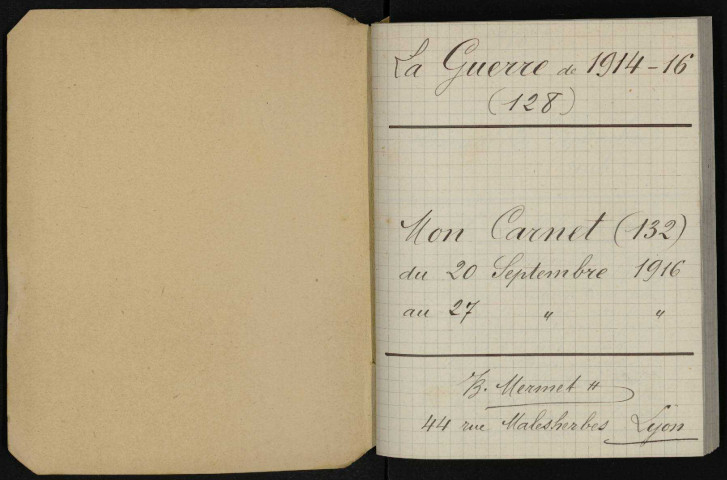 La Guerre de 1914-16
(128)
Mon Carnet (132)
du 20 Septembre 1916
au 27 " "
B. Mermet
44 rue Malesherbes Lyon